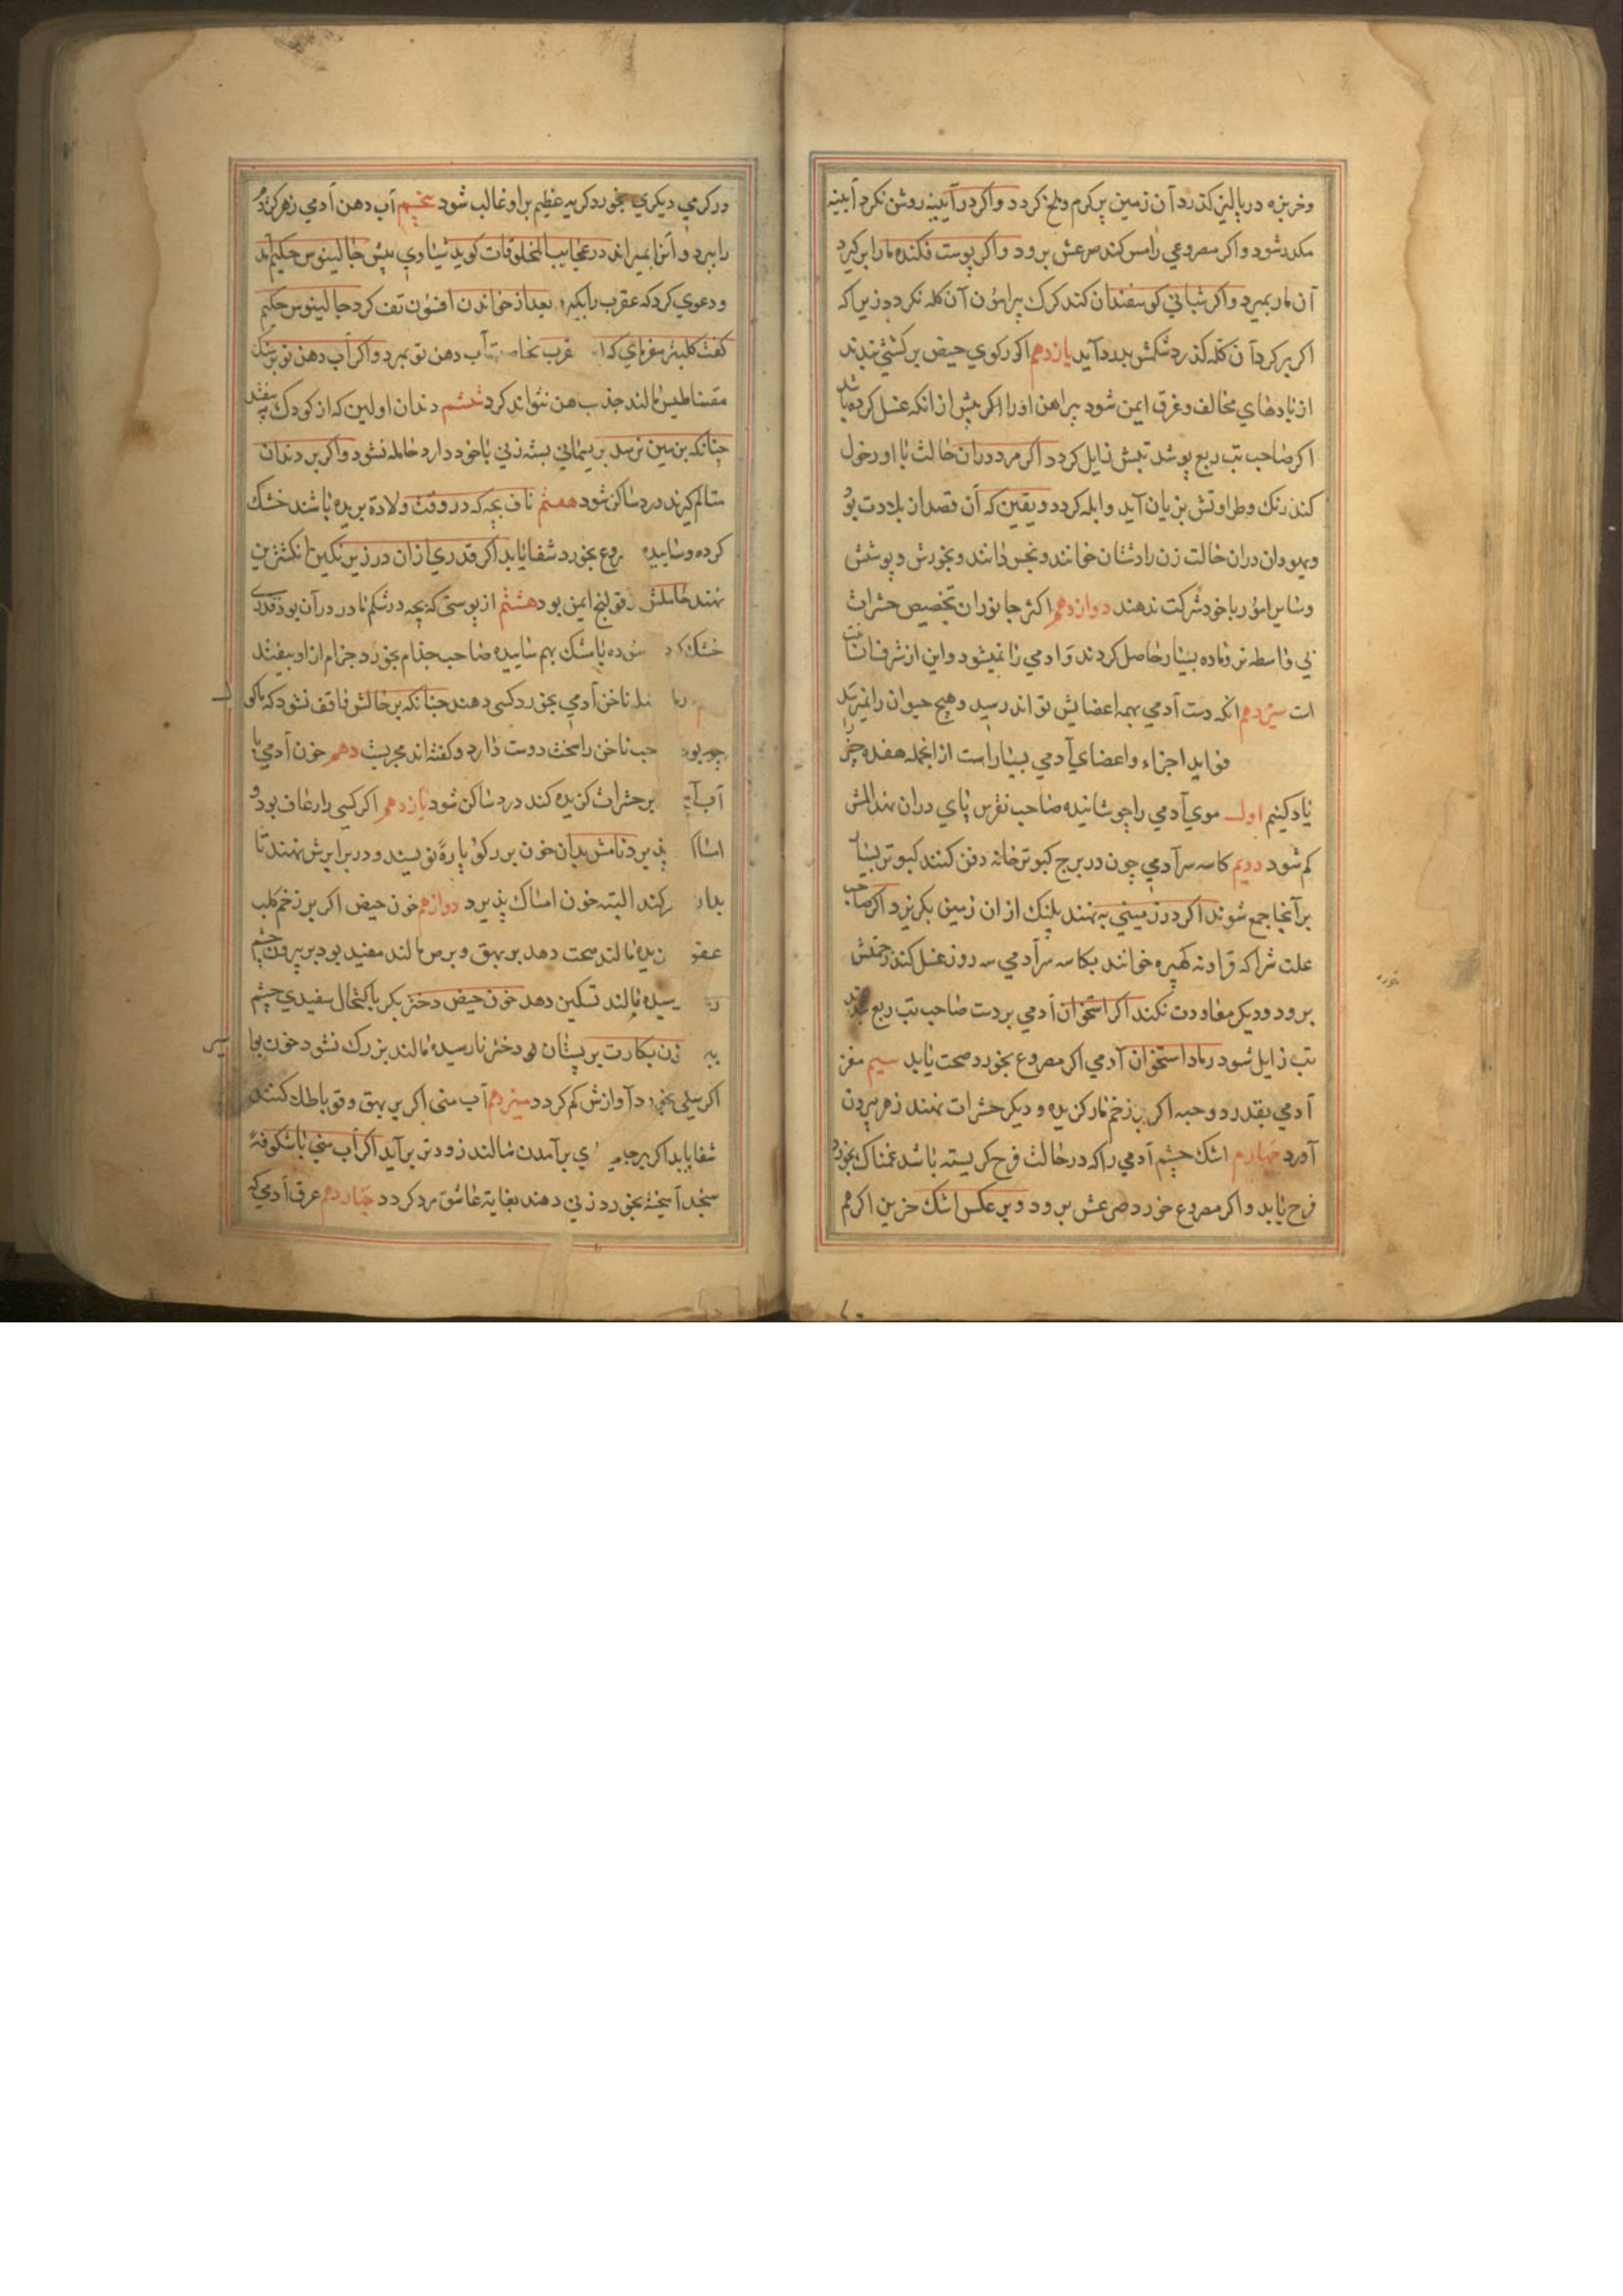 وخربزه در پاليز كذرد آن زمين پر كرم و تلخ كردد و اكر در آيينه روشن نكرد آيينه
مكدر شود و اكر مصروعي را مس كند صرعش برود و اكر پوست فكنده مار ابر كيرد
آن مار بميرد و اكر شباني كوسفندان كند كرك پيرامون آن كله نكردد زيراكه
اكر بر كرد آن كله كذرد شكمش بدرد آيد يازدهم اكر ركوي حيض بر كشتي بندند
از بادهاي مخالف و غرق ايمن شود پيراهن او را اكر پيش از انكه غسل كرده باشد
اكر صاحب تب ربع پوشد تبش زايل كردد اكر مرد دران حالت با او دخول
كند رنك و طراوتش بزيان آيد و ابله كردد و يقين كه آن قصد از بلادت بود
و يهودان دران حالت زن را دشتان خوانند و نجس دانند و بخورش و پوشش
و ساير امور با خود شركت ندهند دوازدهم اكثر جانوران بتخصيص حشرات
بي واسطه نر و ماده بسيار حاصل كردند و ادمي را نميشود و اين از شرف انسانيت
است سيزدهم انكه دست آدمي بهمه اعضايش تواند رسيد و هيچ حيوان را نميرسد
فوايد اجزاء و اعضاي آدمي بسيار است از انجمله هفده چيز را
ياد كنيم اول موي آدمي را جوشانيده صاحب نقرس پاي دران نهد المش
كم شود دويم كاسه سر آدمي چون در برج كبوترخانه دفن كنند كبوتر بسيار
بر آنجا جمع شوند اكر در زميني بنهند پلنك از ان زمين بكريزد اكر صاحب
علت شرا كه خوانند بكاسه سر آدمي سه روز غسل كند زحمتش
برود و ديكر معاودت نكند اكر استخوان آدمي بر دست صاحب تب ربع بندند
تب زايل شود رماد استخوان آدمي اكر مصروع بخورد صحت يابد سيم مغز
آدمي بقدر دو حبه اكر بر زخم مار كزيده و ديكر حشرات نهند زهر بيرون
آورد چهارم اشك چشم آدمي را كه در حالت فرح كريسته باشد غمناك بخورد
فرح يابد و اكر مصروع خورد صرعش برود و بر عكس اشك حزين اكر هم
در كرمي ديكري بخورد كريه عظيم بر او غالب شود پنجم آب دهن آدمي زهر كزنده
را ببرد و آنرا بميراند در عجايب المخلوقات كويد شيادي پيش جالينوس حكيم آمد
و دعوي كرد كه عقرب را بكيرد بعد از خواندن افسون تف كرد جالينوس حكيم
كفت آب دهن تو بمرد و اكر آب دهن تو بر سنك
مقناطيس مالند جذب آهن نتواند كرد ششم دندان اولين كه از كودك بيفتد
چنانكه بزمين نرسد بريسماني بسته زني با خود دارد حامله نشود و اكر بر دندان
متالم كيرند درد ساكن شود هفتم ناف بچه كه در وقت ولادة بريده باشند خشك
كرده و ساييده روع بخورد شفا يابد اكر قدري از ان در زير نكين انكشترين
نهند حاملش ز قولنج ايمن بود هشتم از پوستي كه بچه در شكم مادر در آن بود قدري
خشك سوده با مشك بهم ساييده صاحب جذام بخورد جزام از او بيفتد
ناخن آدمي بخورد كسي دهند چنانكه بر حالش واقف نشود كه
ناخن را سخت دوست دارد و كفته اند مجربست دهم خون آدمي با
آب بر حشرات كزيده كند درد ساكن شود يازدهم اكر كسي را رعاف بود و
پذيرد نامش بدان خون بر ركو پاره نويسند و در برابرش نهند تا
كند البته خون امساك پذيرد دوازدهم خون حيض اكر بر زخم كلب
مالند صحت دهد بر بهق و برص مالند مفيد بود بر بيرون چشم
مالند تسكين دهد خون حيض دختر بكر با كتحال سفيدي چشم
خون بكارت بر پستان دختر نارسيده مالند بزرك نشود خون
اكر د آوازش كم كردد سيزدهم آب مني اكر بر بهق و قوبا طلا كنند
شفا يابد اكر بر برآمدن مالند زودتر برآيد اكر آب مني با شكوفه
سنجد آميخته بخورد زني دهند بغايت عاشق مرد كردد چهاردهم عرق آدمي كه